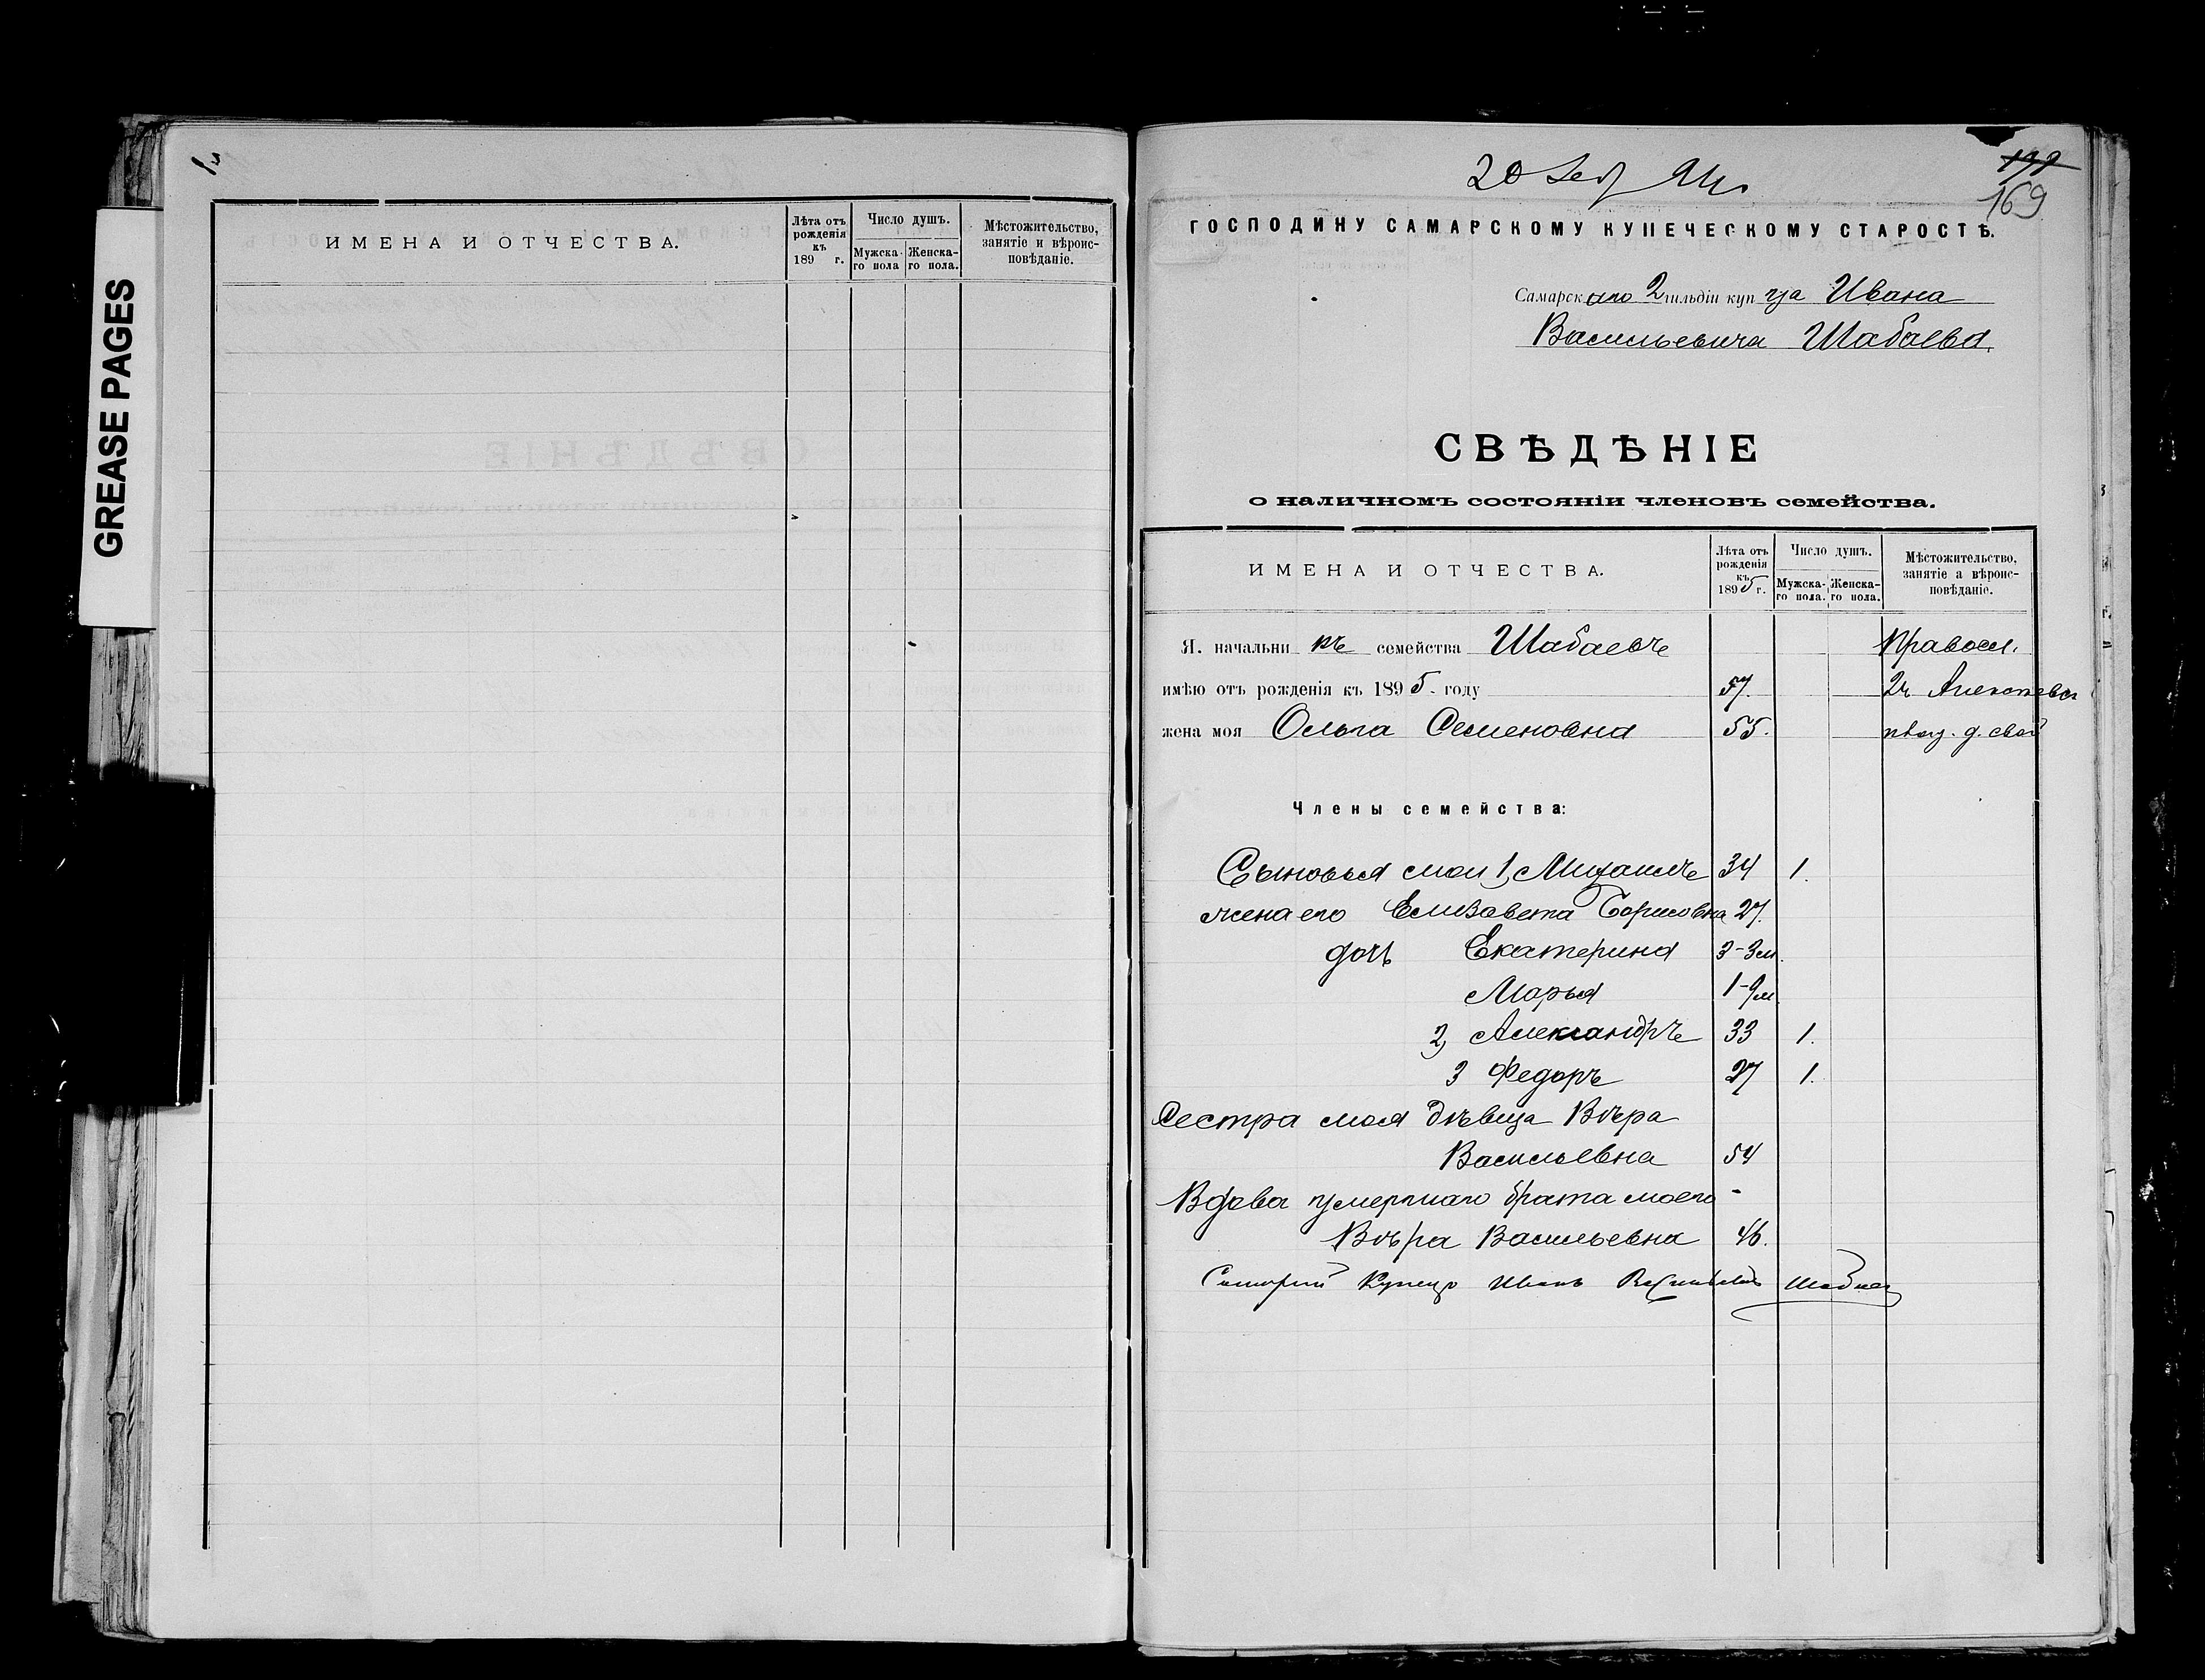 GREASE PAGES
ИМЕНА И ОТЧЕСТВА.
Лѣта отъ рожденія къ 189 г.
Число душъ.
Мужска-го пола
Женска-го пола.
Мѣстожительство, занятіе и вѣроис-повѣданіе.
169
ГОСПОДИНУ САМАРСКОМУ КУПЕЧЕСКОМУ СТАРОСТѢ.
Самарскаго 2 гильдіи купца Ивана
Васильевича Шабаева.
СВѢДѢНІЕ
о наличномъ состояніи членовъ семейства.
ИМЕНА И ОТЧЕСТВА.
Лѣта отъ рожденія къ 1895 г.
Число душъ.
Мужска-го пола.
Женска-го пола.
Мѣстожительство, занятіе а вѣроис-повѣданіе.
Я. начальникъ семейства Шабаевъ Правосл.
имѣю отъ рожденія къ 1895. году 57. 2ч
жена моя Ольга Семеновна 55. д. свой
Члены семейства:
Сыновья мои 1, Михаилъ 34 1.
жена его Елизавета Борисовна 27.
дочь Екатерина 3-3м.
Марья 1-9м.
2, Александръ 33 1.
3 Федоръ 27 1.
Сестра моя дѣвица Вѣра
Васильевна 54
Вдова умершаго брата моего -
Вѣра Васильевна 46.
Купецъ Иванъ Васильевъ Шабаев